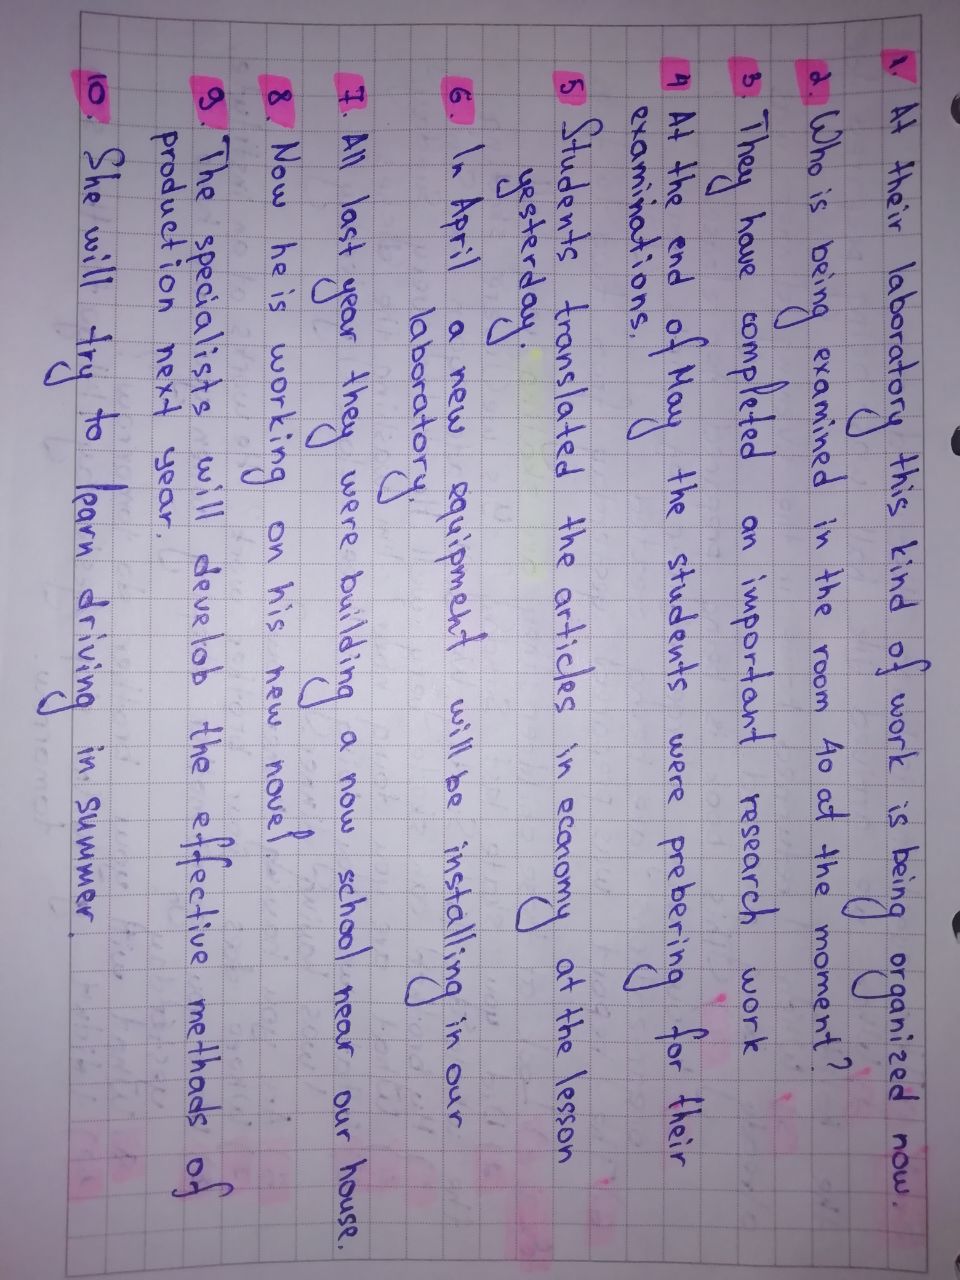 1. At their laboratory this kind of work is being organized now.
2. Who is being examined in the room 40 at the moment?
3. They have completed an important research work
4 At the end of May the students were prebering for their
examinations.
5 Students translated the articles in economy at the lesson
yesterday.
6. In April a new equipment will be installing in our
laboratory.
7. All last year they were building a now school near our house.
8. Now he is working on his new novel.
9. The specialists will develob the effective methads of
production next year.
10. She will try to learn driving in summer.